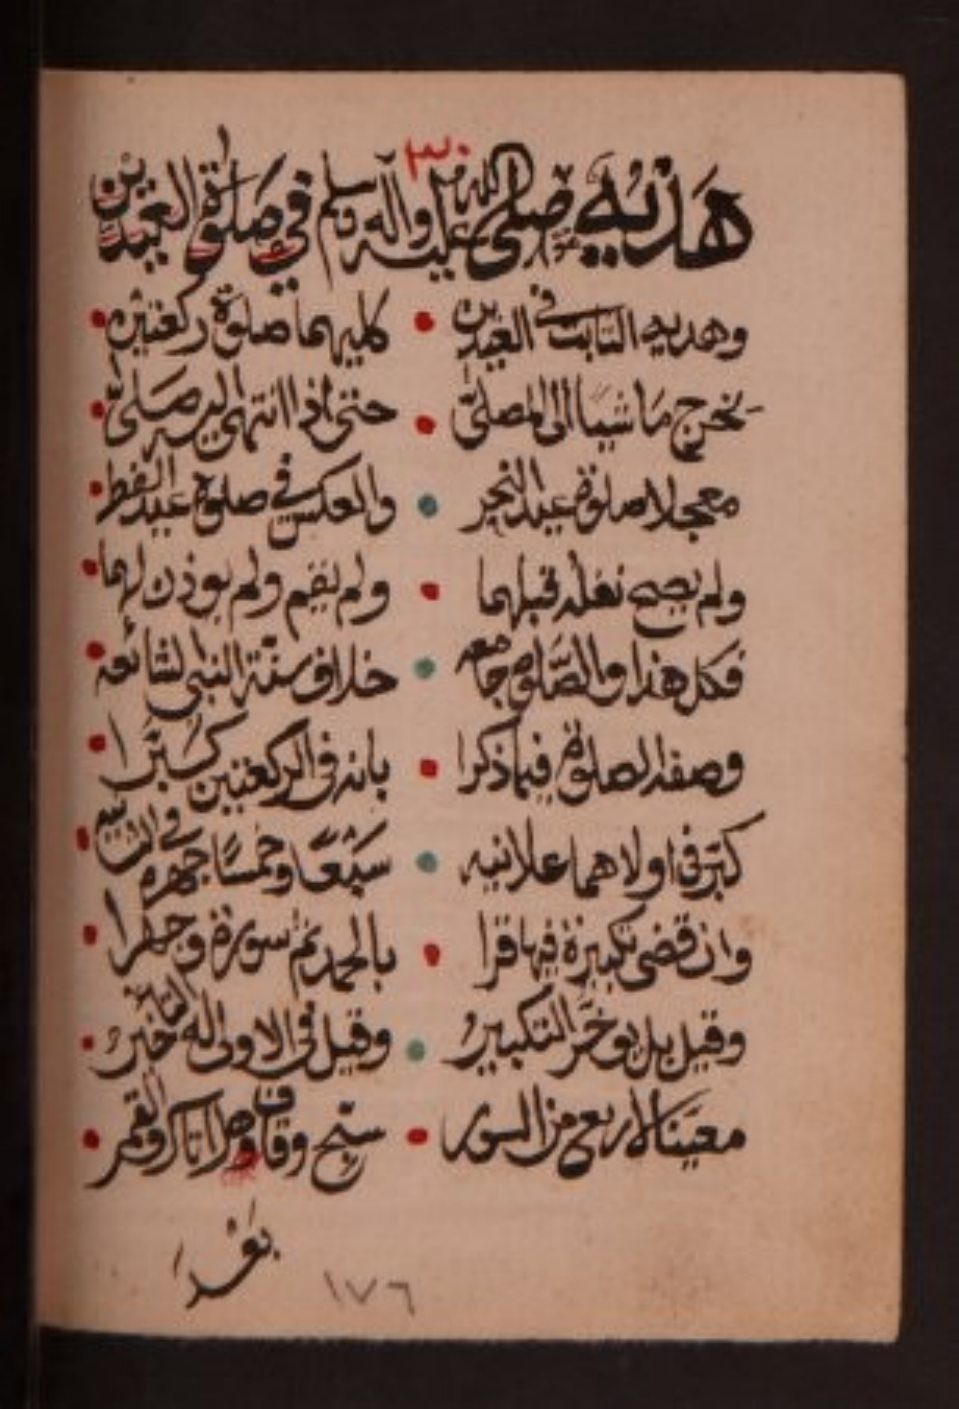 ٣٠
هديه صلى الله عليه وآله وسلم في صلوة العيدين
وهديه الثابت في العيدين • كليهما صلوة ركعتين •
يخرج ماشيا الى المصلى • حتى اذا انتهى اليه صلى •
معجلا صلوة عيد النحر • والعكس في صلوة عيد الفطر •
ولم يصح نفله قبلهما • ولم يقيم ولم يوذن لهما •
فكل هذا والصلوة جامعه • خلاف سنة النبي الشائعه •
وصفة الصلوة فيما ذكرا • بانه في الركعتين كبرا •
كبر في اولاهما علانيه • سبعا وخمسا جهره في الثانيه •
وان قضى تكبيرة فيها قرا • بالحمد ثم سورة وجهرا •
وقيل بل يوخر التكبير • وقيل في الاولى له خير •
معينا لاربع من السور • سبح وقاف والقمر •
بعد
١٧٦